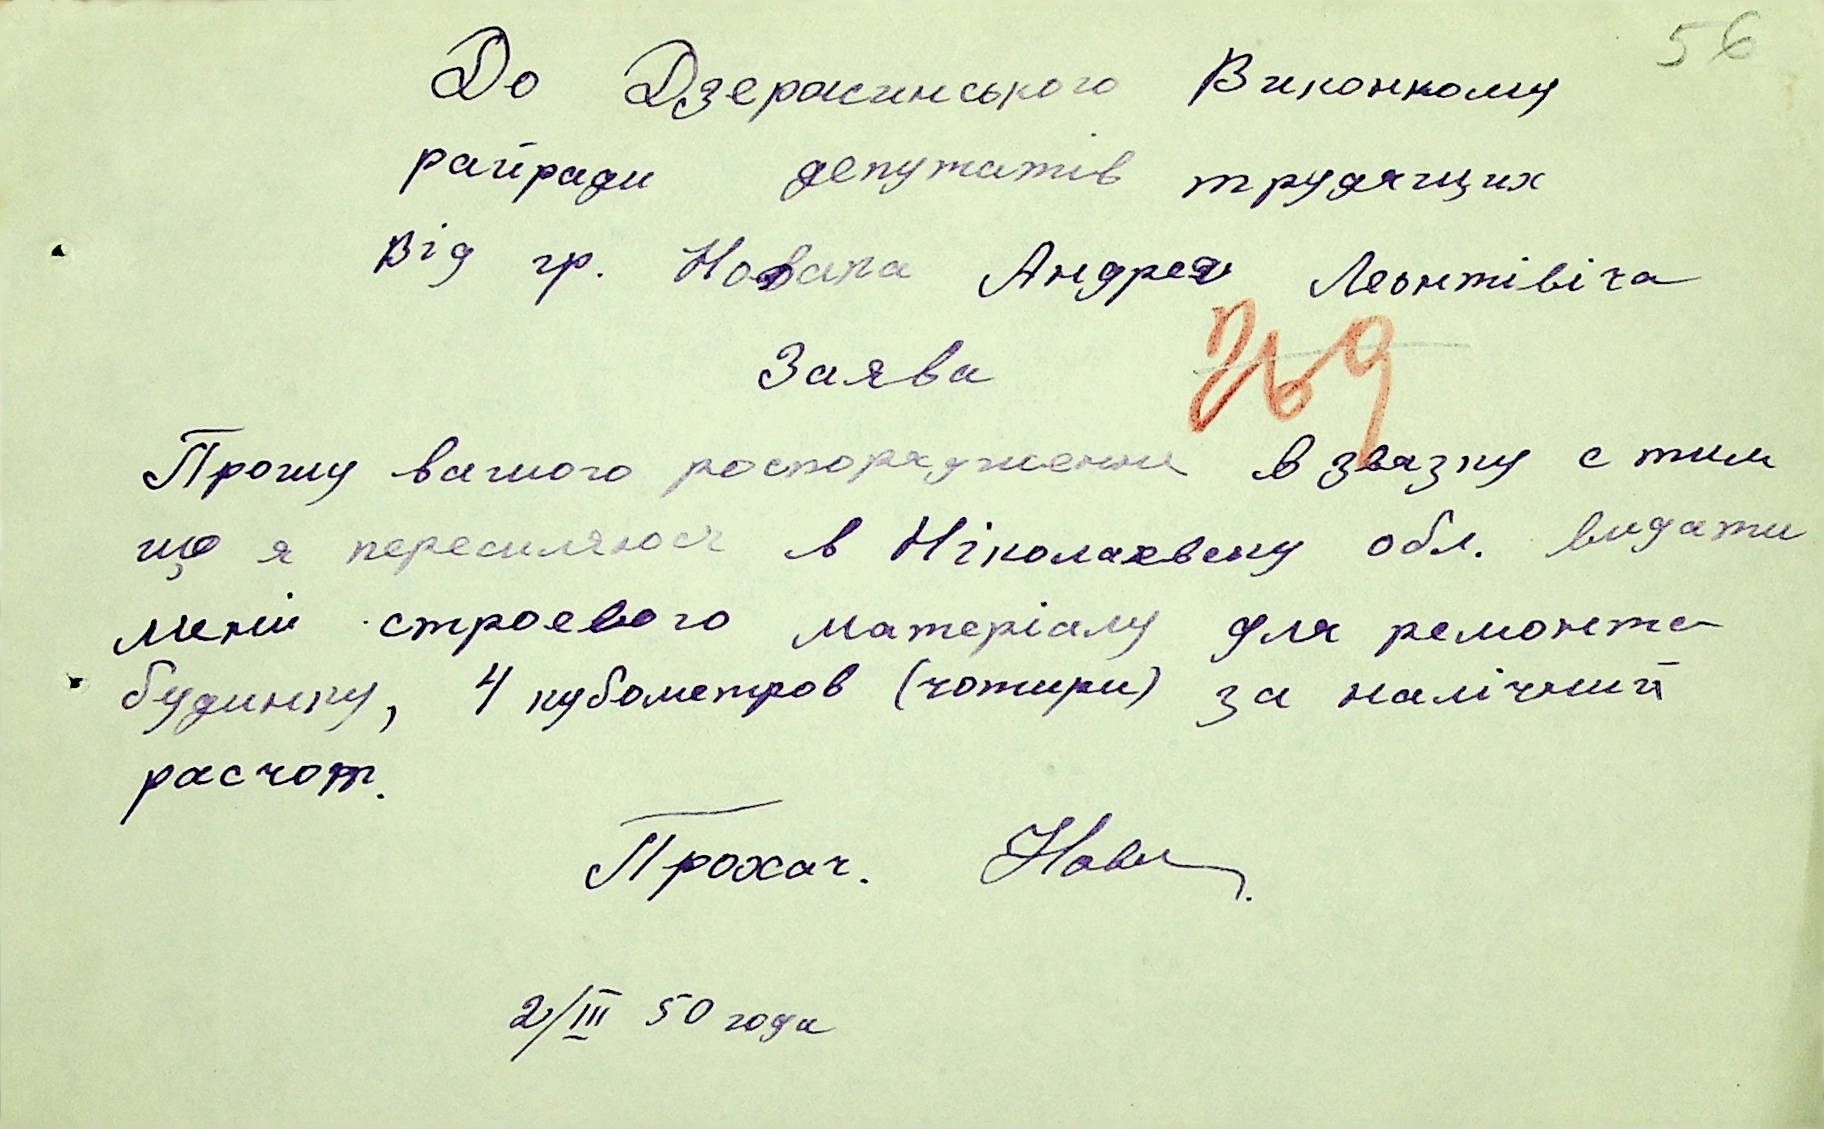 56
До Дзержинського Виконкому
райради депутатів трудящих
Від гр. Новака Андрея Леонтівіча
Заява
Прошу вашого роспорядження в звязку с тим
що я переселяюся в Ніколаевску обл. видати
мені строевого матеріалу для ремонта
будинку, 4 кубометров (чотири) за налічний
расчот.
Прохач. Нова
2/III 50 года